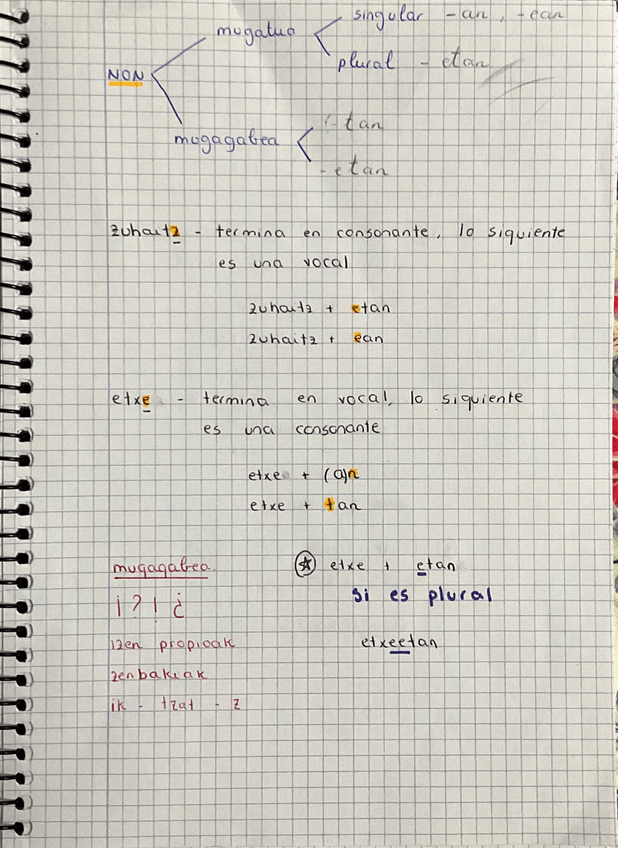 singular -an, -ean
mugatua
plural - etan
NON
-tan
mugagabea
-etan
zuhaitz - termina en consonante, lo siguiente
es una vocal
zuhaitz + etan
zuhaitz + ean
etxe - termina en vocal, lo siguiente
es una consonante
etxe + (a)n
etxe + tan
mugagabea.
¡?! ¿
izen propioak
zenbakiak
ik - tzat - z
* etxe + etan
si es plural
etxeetan